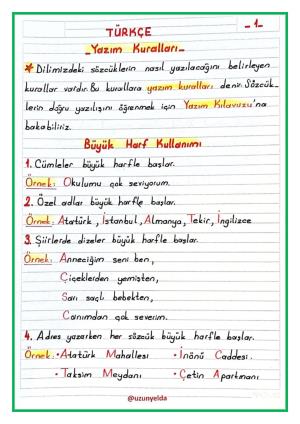 TÜRKÇE
- 1 -
- Yazım Kuralları -
* Dilimizdeki sözcüklerin nasıl yazılacağını belirleyen
kurallar vardır. Bu kurallara yazım kuralları denir. Sözcük-
lerin doğru yazılışını öğrenmek için Yazım Kılavuzu'na
bakabiliriz.
Büyük Harf Kullanımı
1. Cümleler büyük harfle başlar.
Örnek: Okulumu çok seviyorum.
2. Özel adlar büyük harfle başlar.
Örnek: Atatürk, İstanbul, Almanya, Tekir, İngilizce
3. Şiirlerde dizeler büyük harfle başlar.
Örnek: Anneciğim seni ben,
Çiçeklerden yemişten,
Sarı saçlı bebekten,
Canımdan çok severim.
4. Adres yazarken her sözcük büyük harfle başlar.
Örnek: • Atatürk Mahallesi • İnönü Caddesi
• Taksim Meydanı • Çetin Apartmanı
@uzunyelda